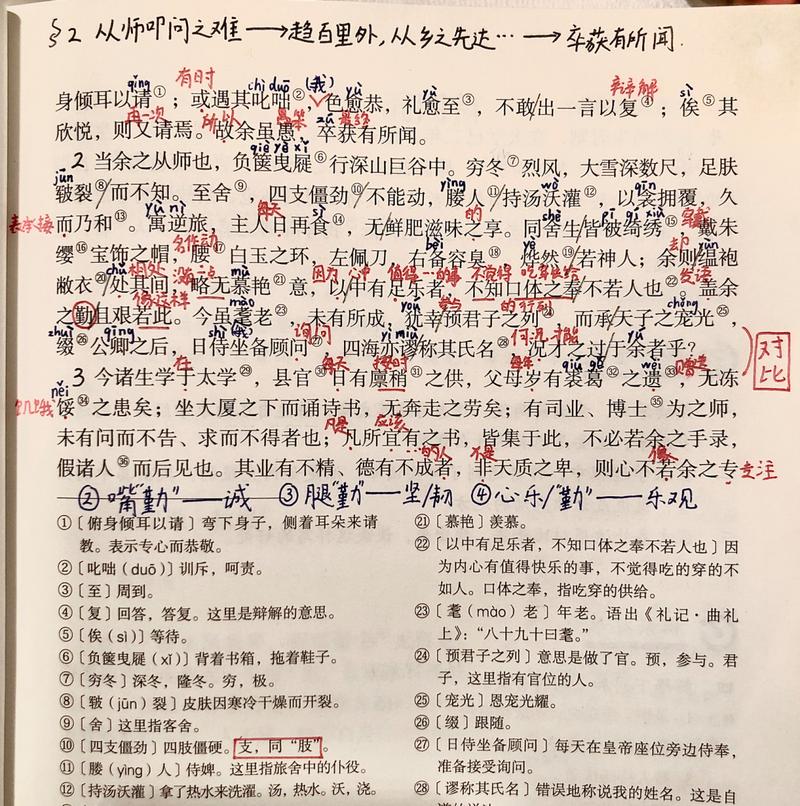 §2 从师叩问之难 → 趋百里外,从乡之先达… → 卒获有所闻.
qīng 有时 chì duō (我) yù yù 辩解 sì
身倾耳以请①;或遇其叱咄②,色愈恭,礼愈至③,不敢出一言以复④;俟⑤其
再一次 所以 愚笨 zú 最终
欣悦,则又请焉。故余虽愚,卒获有所闻。
qiè yè xǐ
2 当余之从师也,负箧曳屣⑥行深山巨谷中。穷冬⑦烈风,大雪深数尺,足肤
jūn yìng wò qīn
皲裂⑧而不知。至舍⑨,四支僵劲⑩不能动,媵人⑪持汤沃灌⑫,以衾拥覆,久
表承接 yù nì 每天 sì 的 shè pī qǐ xiù 穿戴
而乃和⑬。寓逆旅,主人日再食⑭,无鲜肥滋味之享。同舍生皆被绮绣⑮,戴朱
名作动 bèi yè 却 yùn
缨⑯宝饰之帽,腰⑰白玉之环,左佩刀,右备容臭⑱,烨然⑲若神人;余则缊袍
chǔ 相处 没一点 mù 因为 心中 值得…的事 不觉得 吃穿供给 发语
敝衣⑳处其间,略无慕艳㉑意,以中有足乐者,不知口体之奉不若人也㉒。盖余
像这样 mào yòu 参与 的行列 chǒng
之勤且艰若此。今虽耄老㉓,未有所成,犹幸预君子之列㉔,而承天子之宠光㉕,
zhuì qīng shì (我) 询问 yì miù 何况 才能 yú
缀㉖公卿之后,日侍坐备顾问㉗,四海亦谬称其氏名㉘,况才之过于余者乎?
对比
在 每天 按时 每年 qiú gě wèi 赠送
3 今诸生学于太学㉙,县官㉚日有廪稍㉛之供,父母岁有裘葛㉜之遗㉝,无冻
饥饿 něi
馁㉞之患矣;坐大厦之下而诵诗书,无奔走之劳矣;有司业、博士㉟为之师,
凡是 应该
未有问而不告、求而不得者也;凡所宜有之书,皆集于此,不必若余之手录,
…的人 不是 像 专注
假诸人㊱而后见也。其业有不精、德有不成者,非天质之卑,则心不若余之专
②嘴“勤”——诚 ③腿“勤”——坚/韧 ④心乐/“勤”——乐观
①〔俯身倾耳以请〕弯下身子,侧着耳朵来请
教。表示专心而恭敬。
②〔叱咄(duō)〕训斥,呵责。
③〔至〕周到。
④〔复〕回答,答复。这里是辩解的意思。
⑤〔俟(sì)〕等待。
⑥〔负箧曳屣(xǐ)〕背着书箱,拖着鞋子。
⑦〔穷冬〕深冬,隆冬。穷,极。
⑧〔皲(jūn)裂〕皮肤因寒冷干燥而开裂。
⑨〔舍〕这里指客舍。
⑩〔四支僵劲〕四肢僵硬。支,同“肢”。
⑪〔媵(yìng)人〕侍婢。这里指旅舍中的仆役。
⑫〔持汤沃灌〕拿了热水来洗濯。汤,热水。沃,浇。
㉑〔慕艳〕羡慕。
㉒〔以中有足乐者,不知口体之奉不若人也〕因
为内心有值得快乐的事,不觉得吃的穿的不
如人。口体之奉,指吃穿的供给。
㉓〔耄(mào)老〕年老。语出《礼记·曲礼
上》:“八十九十曰耄。”
㉔〔预君子之列〕意思是做了官。预,参与。君
子,这里指有官位的人。
㉕〔宠光〕恩宠光耀。
㉖〔缀〕跟随。
㉗〔日侍坐备顾问〕每天在皇帝座位旁边侍奉,
准备接受询问。
㉘〔谬称其氏名〕错误地称说我的姓名。这是自